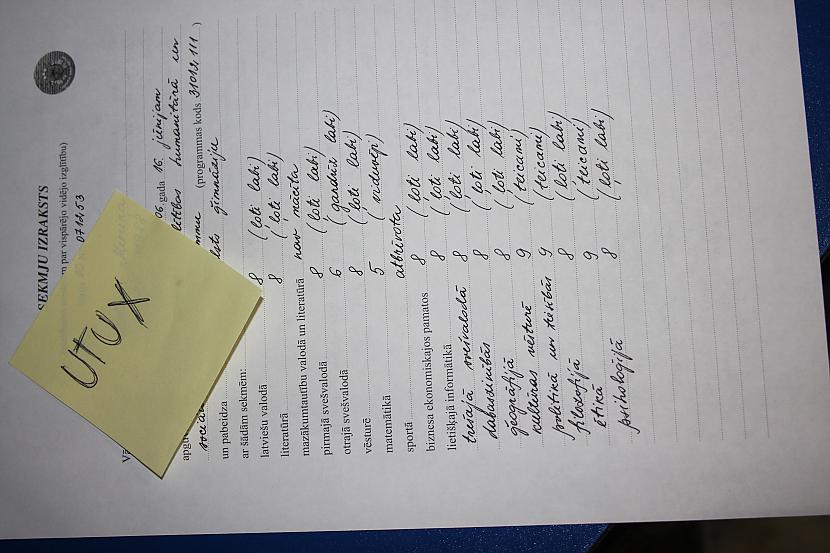 SEKMJU IZRAKSTS
m par vispārējo vidējo izglītību)
071453
06. gada 16. jūnijam
humanitārā un
(programmas kods 31012111)
ģimnāziju
un pabeidza
ar šādām sekmēm:
latviešu valodā 8 (ļoti labi)
literatūrā 8 (ļoti labi)
mazākumtautību valodā un literatūrā nav mācīta
pirmajā svešvalodā 8 (ļoti labi)
otrajā svešvalodā 6 (gandrīz labi)
vēsturē 8 (ļoti labi)
matemātikā 5 (viduvēji)
sportā atbrīvota
biznesa ekonomiskajos pamatos 8 (ļoti labi)
lietišķajā informātikā 8 (ļoti labi)
trešajā svešvalodā 8 (ļoti labi)
dabaszinībās 8 (ļoti labi)
ģeogrāfijā 8 (ļoti labi)
kultūras vēsturē 9 (teicami)
politikā un tiesībās 9 (teicami)
filozofijā 8 (ļoti labi)
ētikā 9 (teicami)
psiholoģijā 8 (ļoti labi)
UTUX